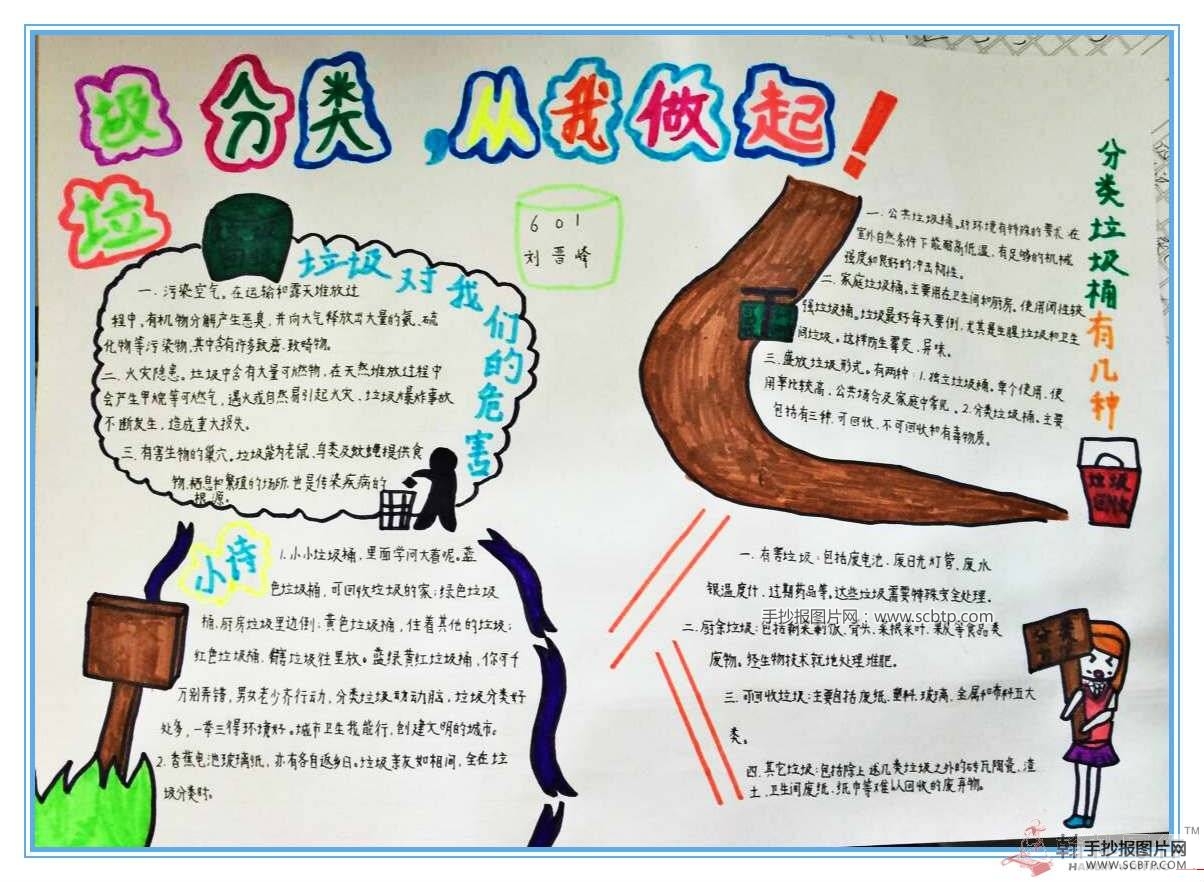 垃圾分类，从我做起！
601
刘晋峰
垃圾对我们的危害
一．污染空气。在运输和露天堆放过
程中，有机物分解产生恶臭，并向大气释放出大量的氨、硫
化物等污染物，其中含有许多致癌、致畸物。
二、火灾隐患。垃圾中含有大量可燃物，在天然堆放过程中
会产生甲烷等可燃气，遇火或自然易引起火灾，垃圾爆炸事故
不断发生，造成重大损失。
三、有害生物的巢穴。垃圾能为老鼠、鸟类及蚊蝇提供食
物、栖息和繁殖的场所，也是传染疾病的
根源。
分类垃圾桶有几种
一．公共垃圾桶。对环境有特殊的要求，在
室外自然条件下能耐高低温，有足够的机械
强度和良好的冲击韧性。
二．家庭垃圾桶。主要用在卫生间和厨房。使用闭性较
强垃圾桶。垃圾最好每天要倒，尤其是生腥垃圾和卫生
间垃圾。这样防生霉变、异味。
三、盛放垃圾形式。有两种：1.独立垃圾桶。单个使用，使
用率比较高，公共场合及家庭中常见。2.分类垃圾桶。主要
包括有三种，可回收，不可回收和有毒物质。
垃圾
回收
小诗
1.小小垃圾桶，里面学问大着呢。蓝
色垃圾桶，可回收垃圾的家；绿色垃圾
桶，厨房垃圾里边倒；黄色垃圾桶，住着其他的垃圾；
红色垃圾桶，有害垃圾往里放。蓝绿黄红垃圾桶，你可千
万别弄错，男女老少齐行动，分类垃圾助动脑，垃圾分类好
处多，一举三得环境好。城市卫生我能行，创建文明的城市。
2.香蕉电池玻璃纸，亦有各自返乡日。垃圾亲友如相问，全在垃
圾分类时。
一．有害垃圾：包括废电池、废日光灯管、废水
银温度计、过期药品等，这些垃圾需要特殊安全处理。
手抄报图片网：www.scbtp.com
二．厨余垃圾：包括剩菜剩饭、骨头、菜根菜叶、果皮等食品类
废物。经生物技术就地处理堆肥。
三．可回收垃圾：主要包括废纸、塑料、玻璃、金属和布料五大
类。
四．其它垃圾：包括除上述几类垃圾之外的砖瓦陶瓷，渣
土、卫生间废纸、纸巾等难以回收的废弃物。
分类
手抄报图片网
WWW.SCBTP.COM
TM